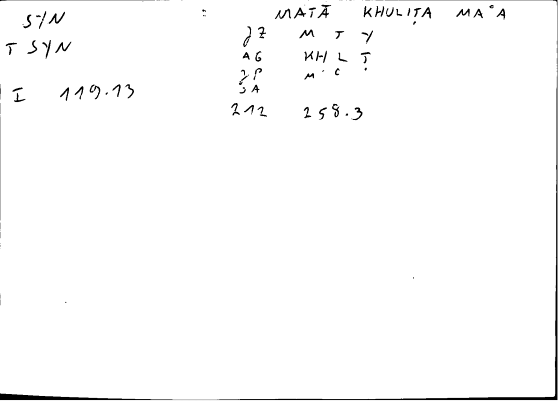 SYN : MATĀ KHULIṬA MAʿA
JZ M T Y
T SYN
AG KH L Ṭ
JP M ʿ
SA
I 119.13
212 258.3